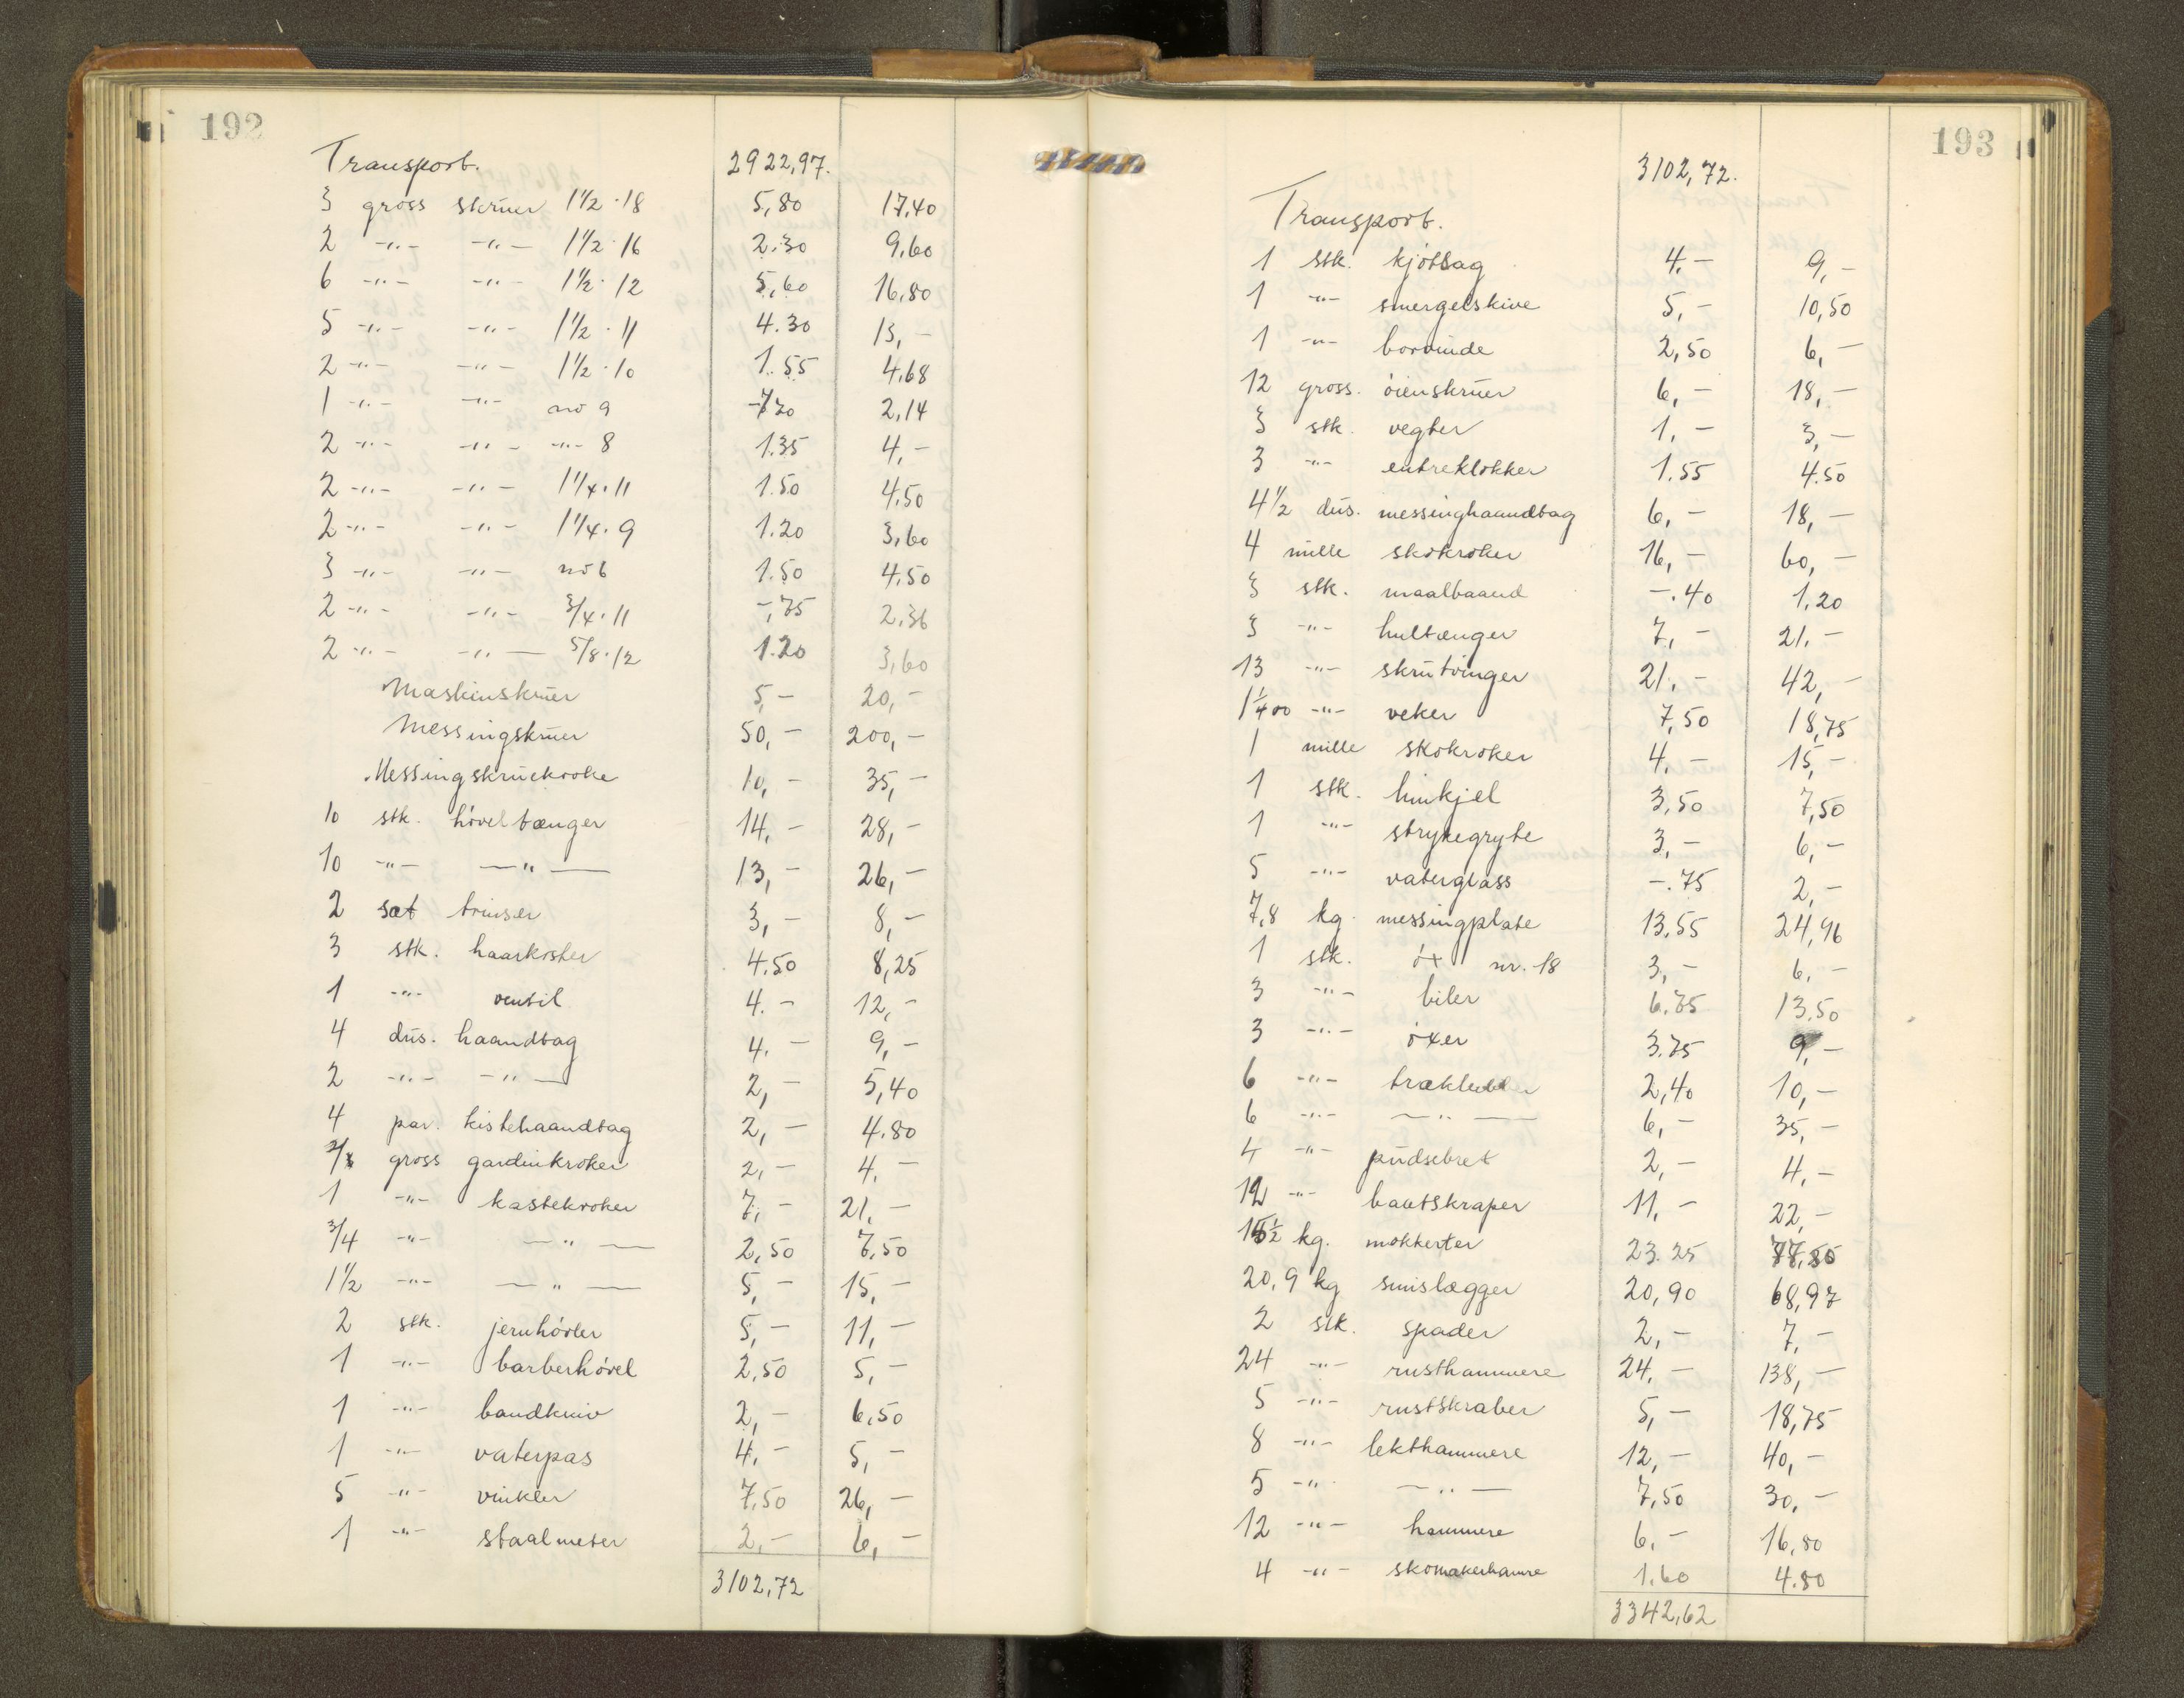 192
Transport. 2922,97.
3 gross skruer 1 1/2 · 18 5,80 17,40
2 -"- -"- 1 1/2 · 16 2.30 9,60
6 -"- -"- 1 1/2 · 12 5,60 16,80
5 -"- -"- 1 1/2 · 11 4.30 13,-
2 -"- -"- 1 1/2 · 10 1.55 4,68
1 -"- -"- no 9 -,70 2,14
2 -"- -"- -"- 8 1.35 4,-
2 -"- -"- 1 1/4 · 11 1.50 4,50
2 -"- -"- 1 1/4 · 9 1.20 3,60
3 -"- -"- no 6 1.50 4,50
2 -"- -"- 3/4 · 11 -,75 2,36
2 -"- -"- 5/8 · 12 1.20 3,60
Maskinskruer 5,- 20,-
Messingskruer 50,- 200,-
Messingskruekroke 10,- 35,-
10 stk. höveltænger 14,- 28,-
10 -"- -"- 13,- 26,-
2 sæt trinser 3,- 8,-
3 stk. haarkoster 4.50 8,25
1 -"- ventil 4.- 12,-
4 dus. haandtag 4.- 9,-
2 -"- -"- 2,- 5,40
4 par. kistehaandtag 2,- 4.80
gross gardinkroker 2,- 4.-
1 -"- kastekroker 7,- 21.-
3/4 -"- -"- 2,50 7,50
1 1/2 -"- -"- 5,- 15,-
2 stk. jernhövler 5,- 11,-
1 -"- barberhövel 2,50 5,-
1 -"- bandkniv 2,- 6,50
1 -"- vaterpas 4.- 5,-
5 -"- vinkler 7,50 26,-
1 -"- staalmeter 2,- 6,-
3102,72
193
3102,72.
Transport.
1 stk. kjötsag 4,- 9,-
1 -"- smergelskive 5,- 10,50
1 -"- borvinde 2,50 6,-
12 gross. öienskruer 6,- 18,-
3 stk. vegter 1,- 3,-
3 -"- entreklokker 1.55 4.50
4 1/2 dus. messinghaandtag 6,- 18,-
4 mille skokroker 16,- 60,-
3 stk. maalbaand -.40 1,20
3 -"- hultænger 7,- 21.-
13 -"- skrutvinger 21,- 42,-
1 1/400 -"- veker 7,50 18,75
1 mille skokroker 4.- 15,-
1 stk. limkjel 3,50 7,50
1 -"- strykegryte 3,- 6,-
5 -"- vaterglass -.75 2,-
7,8 kg. messingplate 13,55 24,96
1 stk. öx nr. 18 3,- 6,-
3 -"- biler 6.75 13.50
3 -"- öxer 3.75 9,-
6 -"- 2,40 10,-
6 -"- -"- 6,- 35,-
4 -"- pudsebret 2,- 4,-
12 -"- bautskraper 11,- 22,-
15 1/2 kg. mokkerter 23.25
20,9 kg smislægger 20,90 68,97
2 stk. spader 2,- 7,-
24 -"- rusthammere 24,- 138,-
5 -"- rustskraber 5,- 18,75
8 -"- lekthammere 12,- 40,-
5 -"- -"- 7,50 30,-
12 -"- hammere 6,- 16,80
4 -"- skomakerhamre 1.60 4.80
3342,62